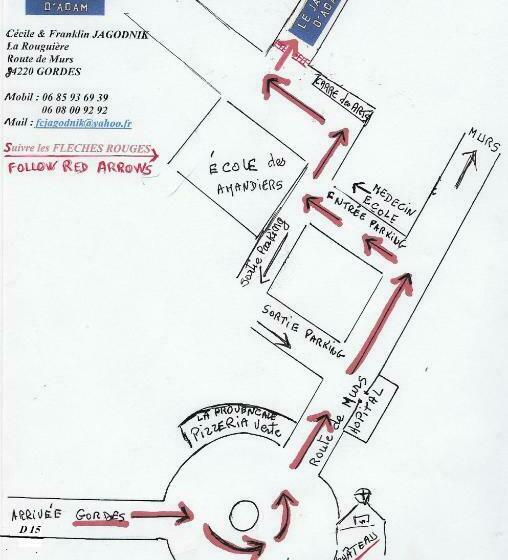 D'ADAM
Cécile & Franklin JAGODNIK
La Rouguière
Route de Murs
84220 GORDES
Mobil : 06 85 93 69 39
06 08 00 92 92
Mail : fcjagodnik@yahoo.fr
Suivre les FLECHES ROUGES
FOLLOW RED ARROWS
LE JA
D'ADA
CARRE des ARTS
MURS
ÉCOLE des
AMANDIERS
MEDECIN
ECOLE
ENTRÉE PARKING
Sortie Parking
SORTIE PARKING
Route de MURS
HOPITAL
LA PROVENCALE
PIZZERIA Verte
ARRIVÉE GORDES
D 15
CHÂTEAU